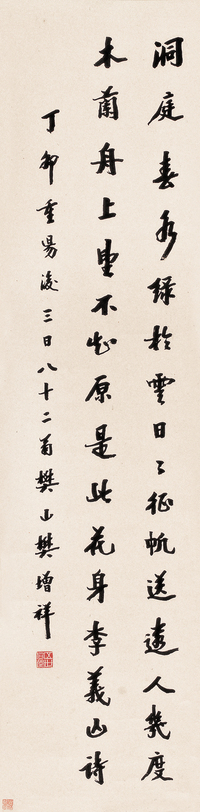 洞庭春水綠於雲日日征帆送遠人幾度
木蘭舟上望不知原是此花身李義山詩
丁卯重陽後三日八十二翁樊山樊增祥